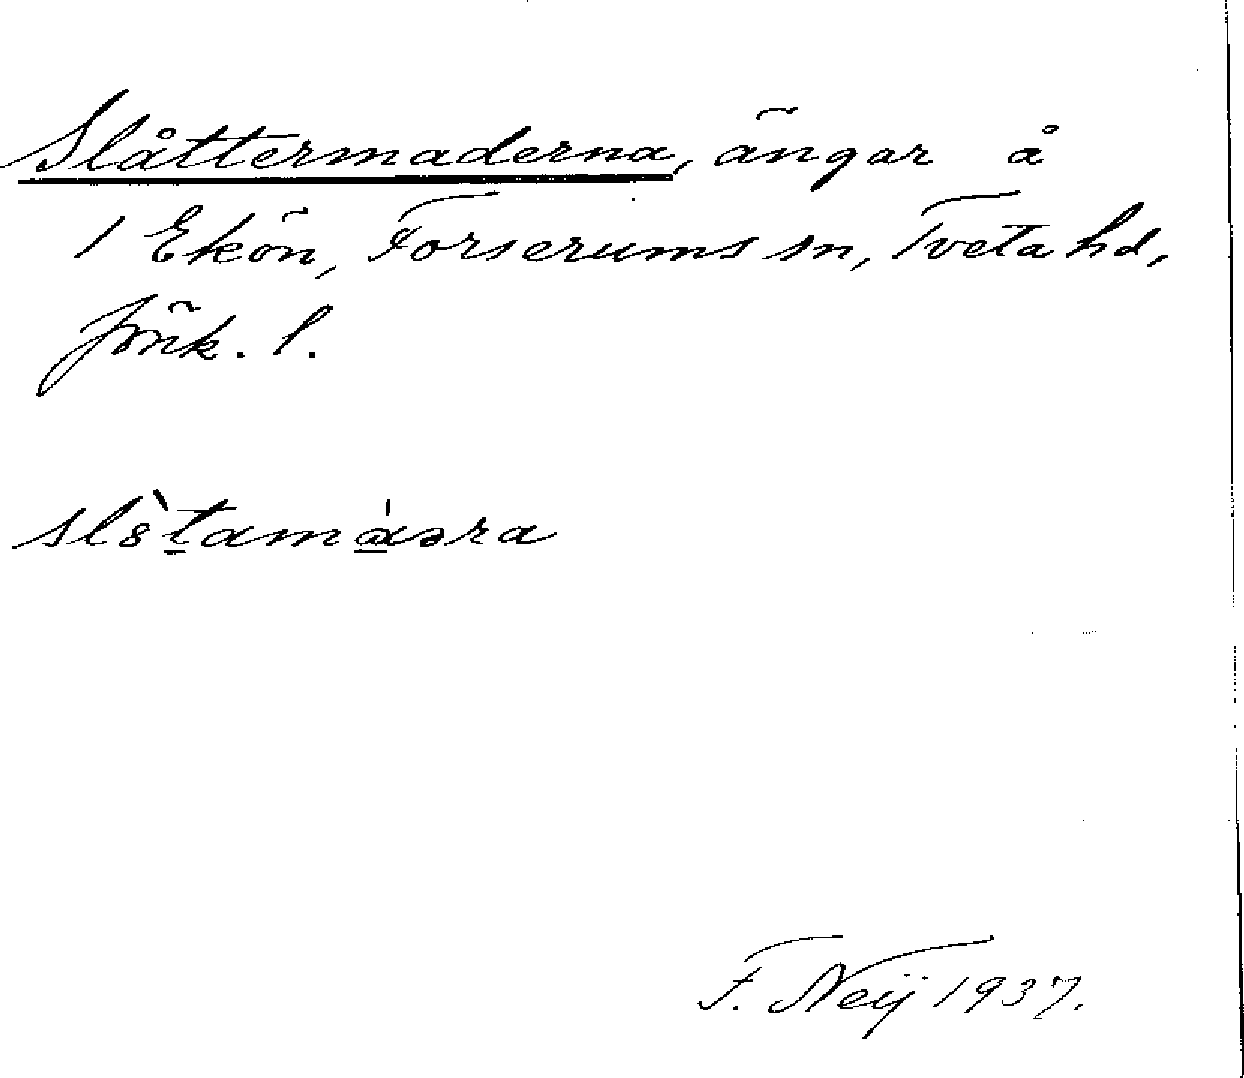 Slåttermaderna, ängar å
1 Ekön, Forserums sn, Tveta hd,
Jönk. l.
F. Neij 1937.